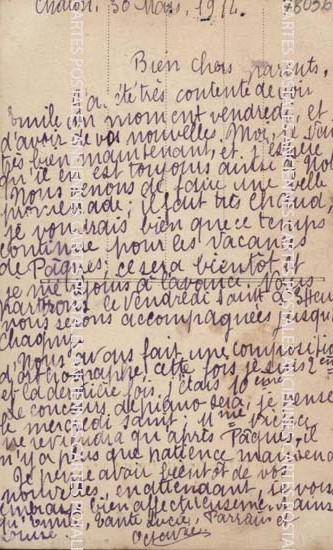 Chalon, 30 Mars, 1912.
Bien chers parents,
J'ai été très contente de voir
Emile un moment vendredi, et
d'avoir de vos nouvelles. Moi, je vais
très bien maintenant, et j'espère
qu'il en est toujours ainsi
Nous venons de faire une belle
promenade; il fait très chaud,
je voudrais bien que ce temps
continue pour les vacances
de Pâques, ce sera bientôt et
je me réjouis à l'avance. Nous
partirons le vendredi saint à
nous serons accompagnées jusqu'
Chagny.
Nous avons fait une composition
d'orthographe, cette fois je suis 2eme
et la dernière fois j'étais 10eme
Le concours de piano sera, je pense
le mercredi saint. Melle
ne reviendra qu'après Pâques, il
n'y a plus que patience maintenant
Je pense avoir bientôt de vos
nouvelles, en attendant, je vous
embrasse bien affectueusement ainsi
qu'Emile, tante Lucie, Parrain et